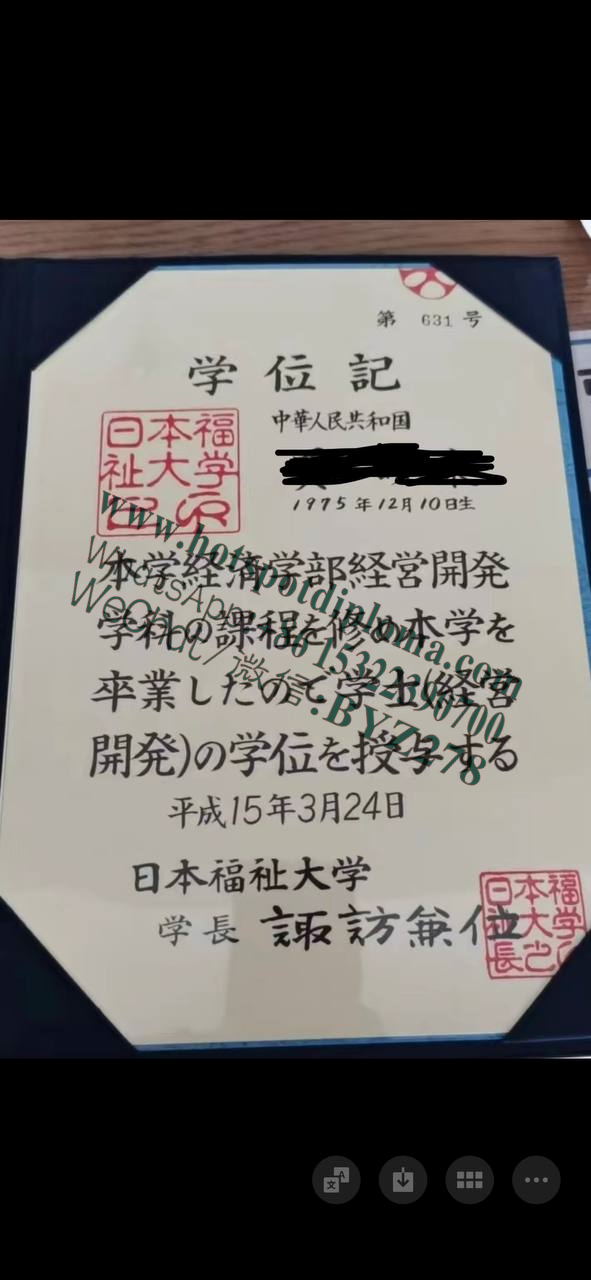 第 631 号
学位記
日本福
祉大学
中華人民共和国
1975年12月10日生
本学経済学部経営開発
学科の課程を修め本学を
卒業したので学士(経営
開発)の学位を授与する
平成15年3月24日
日本福祉大学
学長 諏訪兼位
日本福
祉大学
長之印
www.hotspotdiploma.com
WhatsApp
WeChat/微信:BYZ278